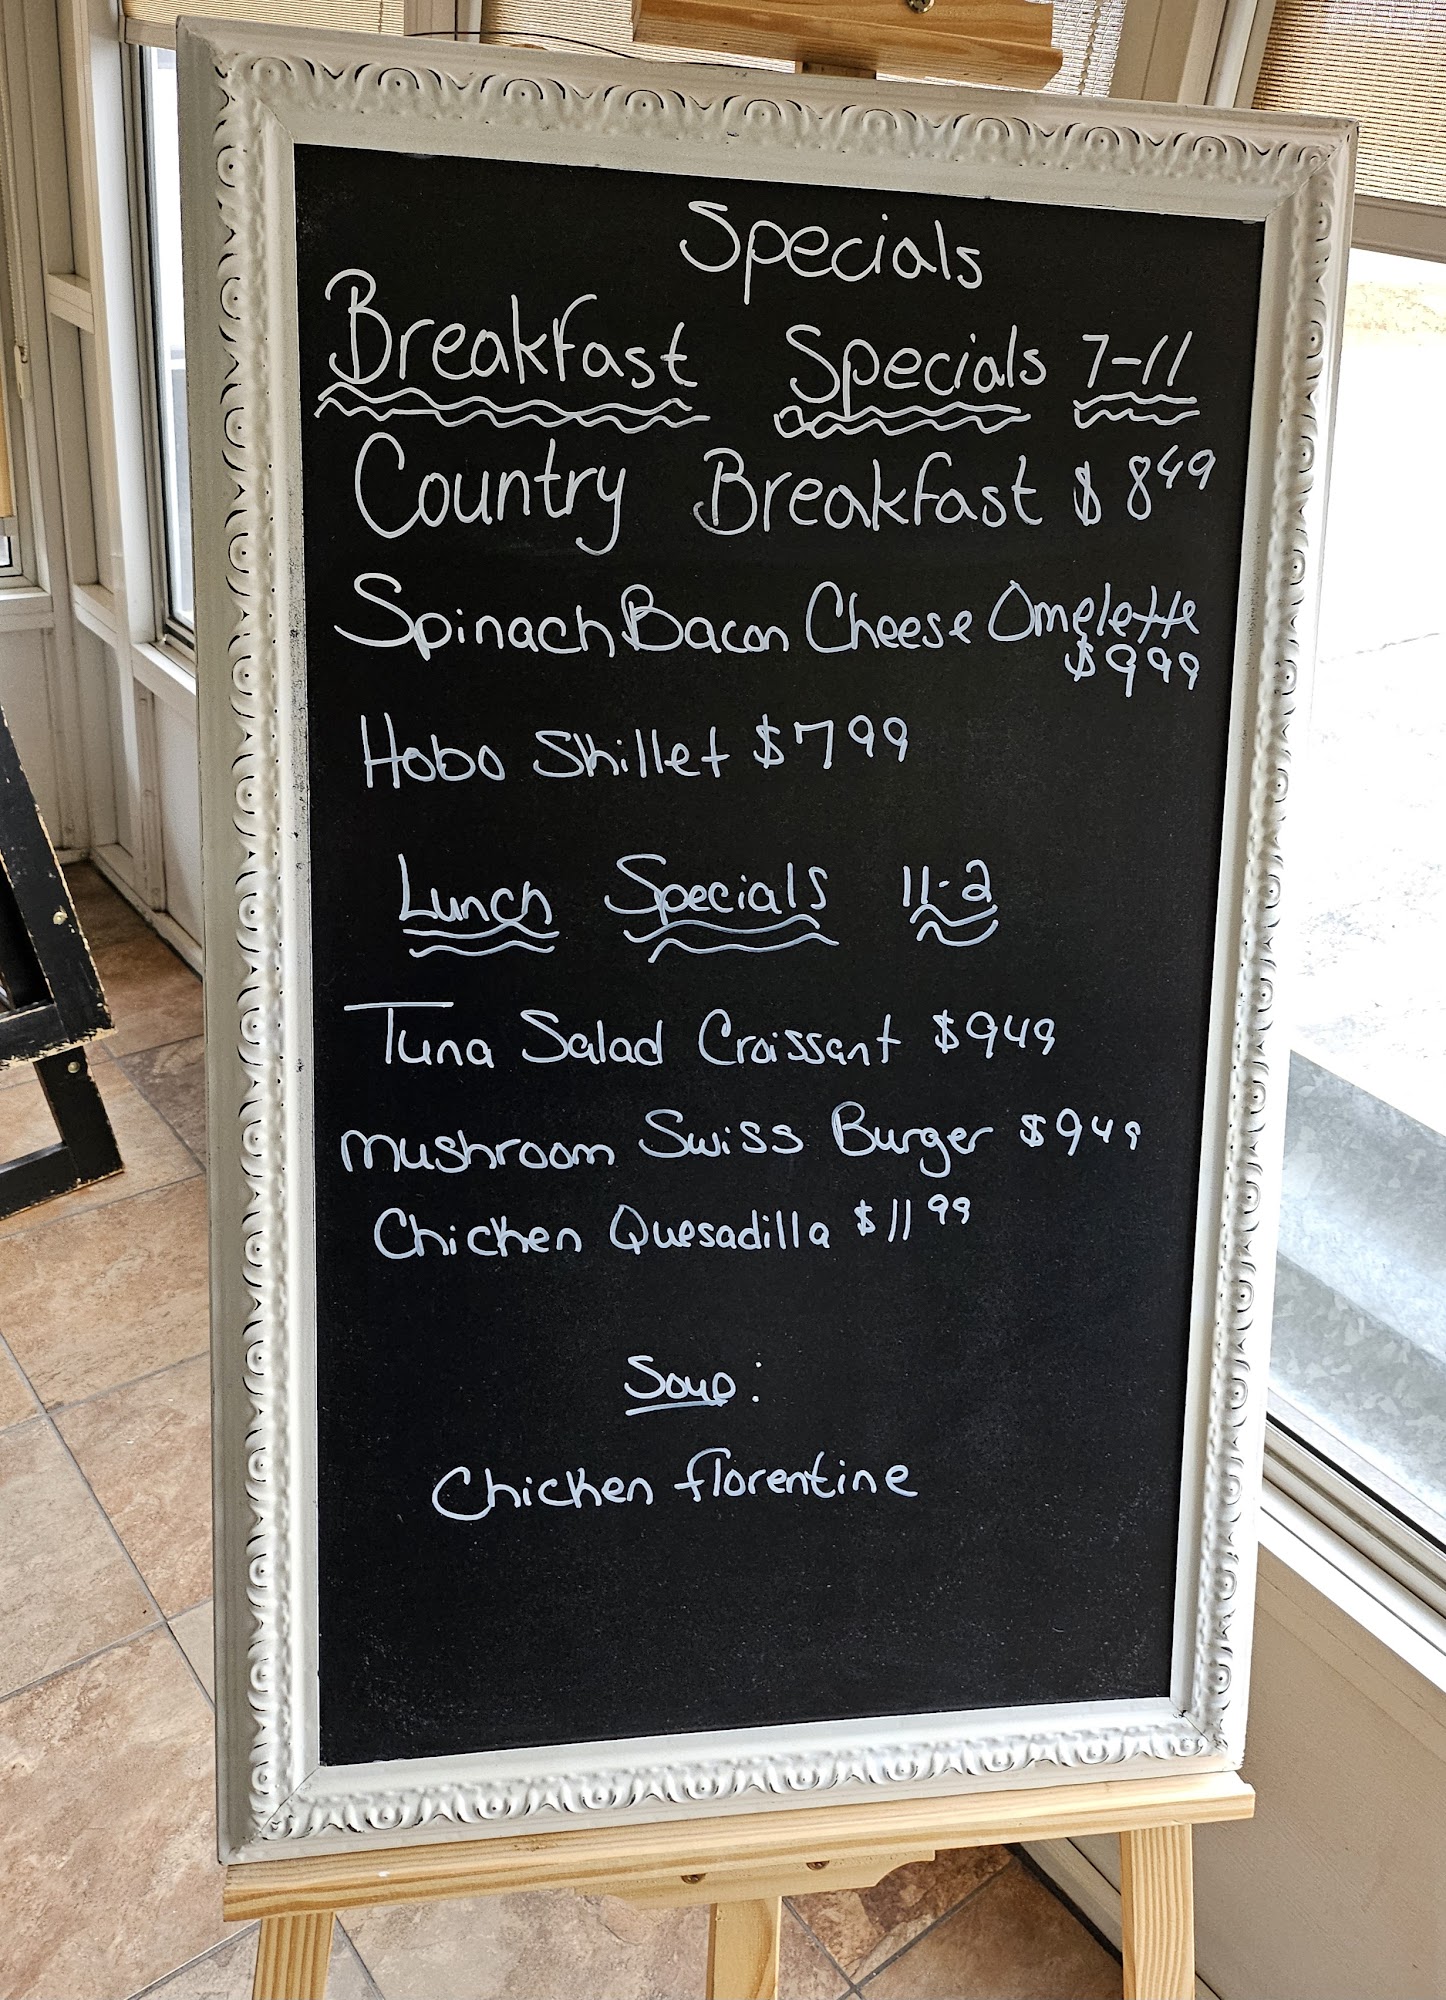 Specials
Breakfast Specials 7-11
Country Breakfast $8 49
Spinach Bacon Cheese Omelette
$9 99
Hobo Skillet $7 99
Lunch Specials 11-2
Tuna Salad Croissant $9 49
Mushroom Swiss Burger $9 49
Chicken Quesadilla $11 99
Soup:
Chicken florentine